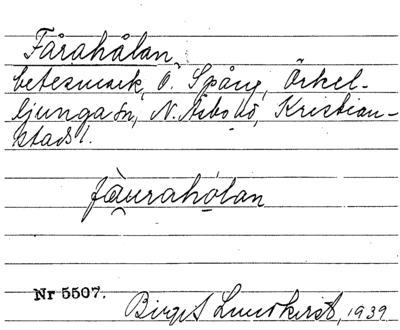 Fårahålan
betesmark, Ö. Spång, Örkel-
ljunga sn, N. Åsbo hd, Kristian-
stads l.
fàurahólan
Nr 5507.
Birgit Lundkvist, 1939